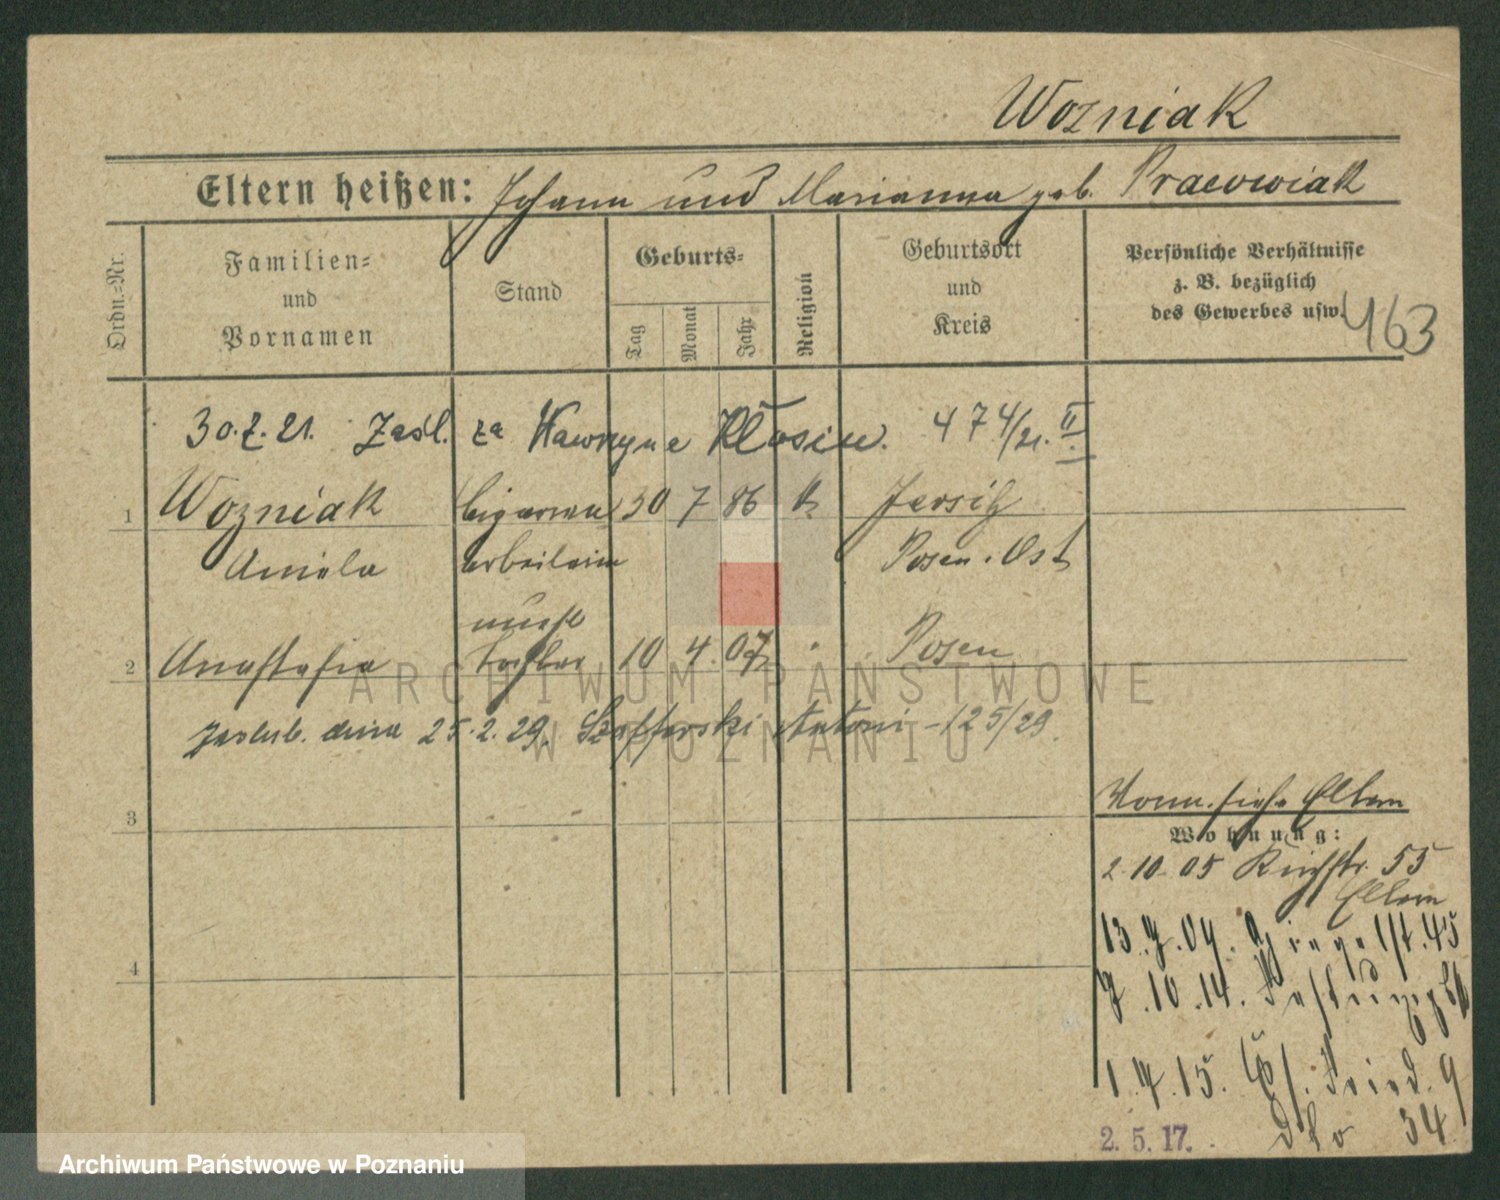 Wozniak
Eltern heißen: Johann und Marianna geb.
Ordn.-Nr.
Familien- und Vornamen
Stand
Geburts-
Tag
Monat
Jahr
Religion
Geburtsort und Kreis
Persönliche Verhältnisse
z. B. bezüglich
des Gewerbes usw.
463
30.7.21. Zaśl. za Wawrzyna Kłosin. 474/21. II.
1 Wozniak Cigarren 30 7 86 k Jersitz
Aniela arbeiterin Posen. Ost
unehl
2 Anastasia Tochter 10 4. 07 Posen
zaślub. dnia 25.2.29. Antoni - 125/29.
3
4
siehe Eltern
Wohnung:
2.10.05 55
Eltern
13.7.09. 45
7.10.14.
1.4.15. 9
2.5.17. dto 34
ARCHIWUM PAŃSTWOWE
W POZNANIU
Archiwum Państwowe w Poznaniu